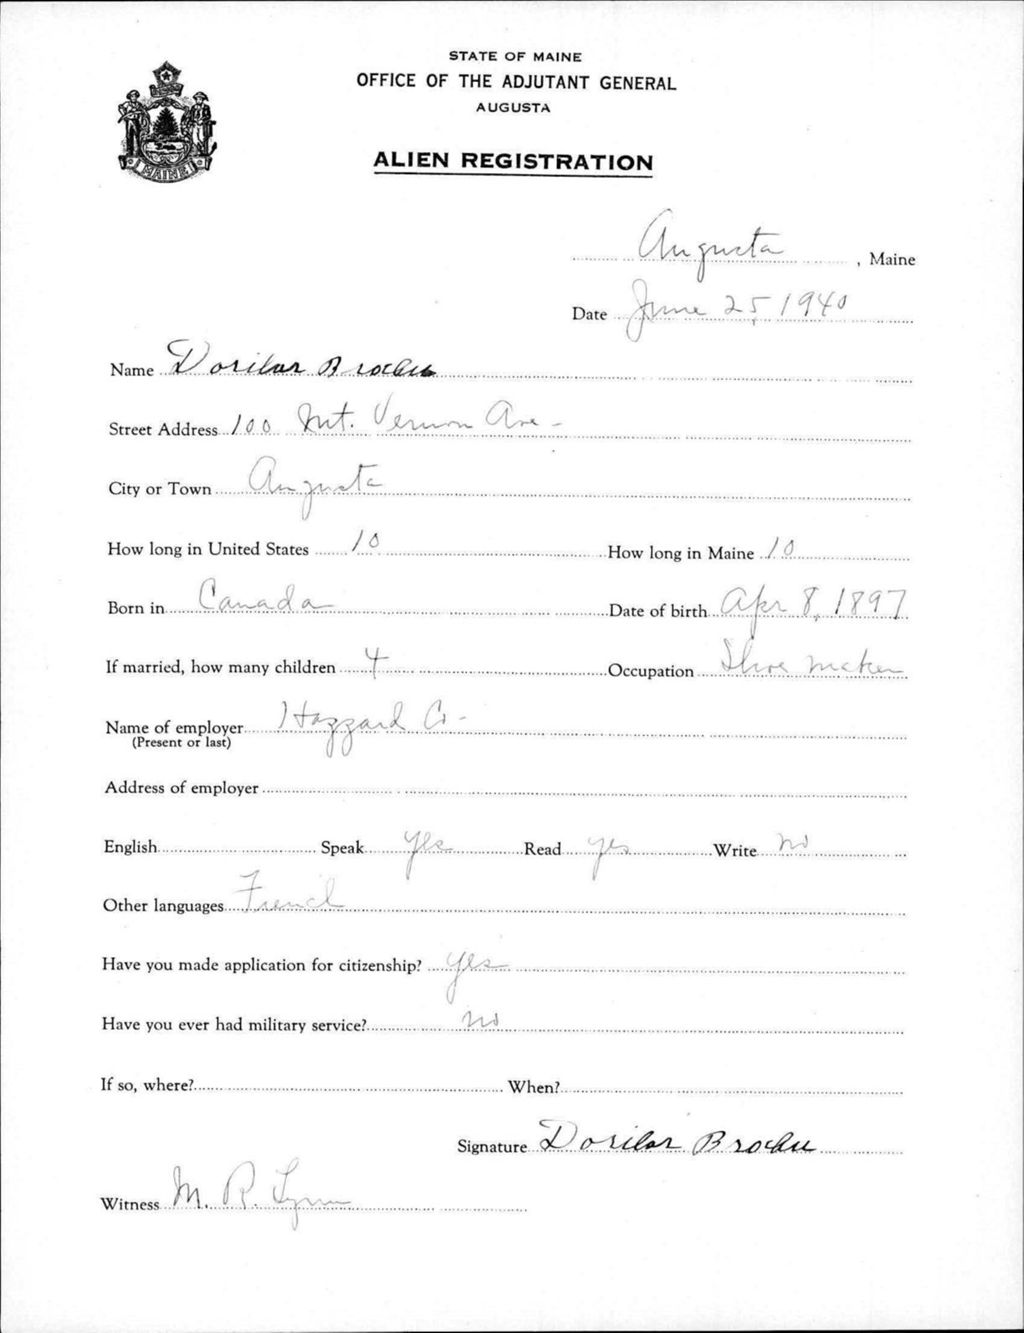 STATE OF MAINE
OFFICE OF THE ADJUTANT GENERAL
AUGUSTA
ALIEN REGISTRATION
MAINE
Augusta, Maine
Date June 25, 1940
Name Dorilas Brochu
Street Address 100 Mt. Vernon Ave -
City or Town Augusta
How long in United States 10 How long in Maine 10
Born in Canada Date of birth Apr 8, 1897
If married, how many children 4 Occupation Shoe maker
Name of employer Hazzard Co -
(Present or last)
Address of employer
English Speak yes Read yes Write no
Other languages French
Have you made application for citizenship? yes
Have you ever had military service? no
If so, where? When?
Signature Dorilas Brochu
Witness M. R. Lynn